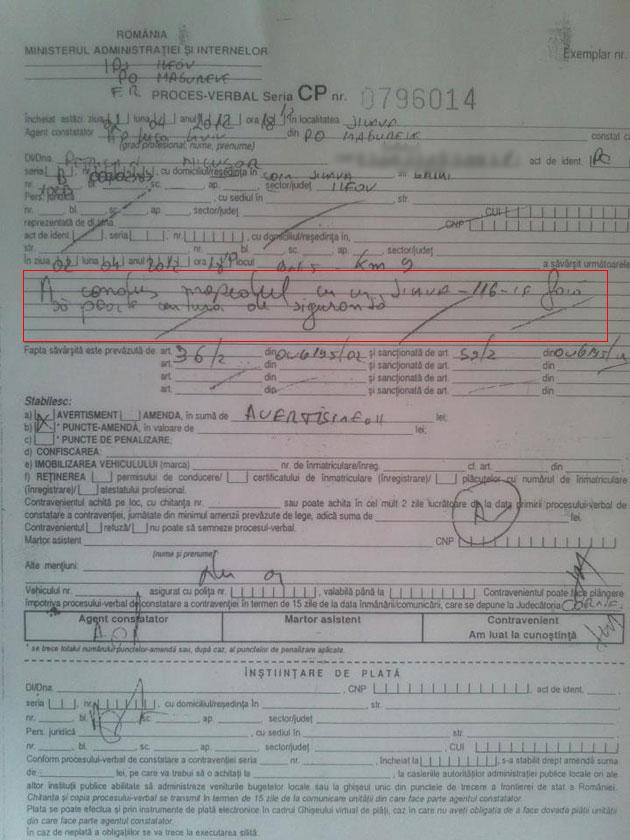 ROMÂNIA
MINISTERUL ADMINISTRAŢIEI ŞI INTERNELOR
Exemplar nr.
IPJ ILFOV
PO MAGURELE
PROCES-VERBAL Seria CP nr. 0796014
Încheiat astăzi ziua luna 04 anul 2012 ora 18 în localitatea JILAVA
Agent constatator din PO MAGURELE constat că
(grad profesional, nume, prenume)
Dl/Dna act de ident.
seria nr. , cu domiciliu/reşedinţa în com JILAVA str.
nr. bl. sc. ap. sector/judeţ ILFOV
Pers. juridică , cu sediul în str.
nr. bl. sc. ap. sector/judeţ CUI
reprezentată de dl./dna. CNP
act de ident. , seria nr. , cu domiciliu/reşedinţa în,
str. nr. bl. sc. ap. sector/judeţ
în ziua 02 luna 04 anul 2012 ora 18 locul km 9 a săvârşit următoarele
A condus mopedul cu nr JILAVA-116-IF fără
să poarte centura de siguranţă
Fapta săvârşită este prevăzută de art. 36/2 din OUG 195/02 şi sancţionată de art. din OUG 195
art. din şi sancţionată de art. din
art. din şi sancţionată de art. din
Stabilesc:
a) X AVERTISMENT AMENDA, în sumă de AVERTISMENT lei;
b) * PUNCTE-AMENDA, în valoare de lei;
c) * PUNCTE DE PENALIZARE;
d) CONFISCAREA:
e) IMOBILIZAREA VEHICULULUI (marca) nr. de înmatriculare/înreg. cf. art. din
f) REŢINEREA permisului de conducere/ certificatului de înmatriculare (înregistrare)/ plăcuţelor cu numărul de înmatriculare
(înregistrare)/ atestatului profesional.
Contravenientul achită pe loc, cu chitanţa nr. sau poate achita în cel mult 2 zile lucrătoare de la data primirii procesului-verbal de
constatare a contravenţiei, jumătate din minimul amenzii prevăzute de lege, adică suma de lei.
Contravenientul refuză/ nu poate să semneze procesul-verbal.
Martor asistent CNP
(nume şi prenume)
Alte menţiuni:
Vehiculul nr. asigurat cu poliţa nr. , valabilă până la Contravenientul poate face plângere
împotriva procesului-verbal de constatare a contravenţiei în termen de 15 zile de la data înmânării/comunicării, care se depune la Judecătoria
Agent constatator Martor asistent Contravenient
Am luat la cunoştinţă
* se trece totalul numărului punctelor-amendă sau, după caz, al punctelor de penalizare aplicate.
ÎNŞTIINŢARE DE PLATĂ
Dl/Dna. , CNP act de ident.
seria nr. , cu domiciliu/reşedinţa în str.
nr. bl. sc. ap. sector/judeţ
Pers. juridică , cu sediul în str.
nr. bl. sc. ap. sector/judeţ , CUI
Conform procesului-verbal de constatare a contravenţiei seria nr. , încheiat la , s-a stabilit drept amendă suma
de lei, pe care va trebui să o achitaţi la , la casieriile autorităţilor administraţiei publice locale ori ale
altor instituţii publice abilitate să administreze veniturile bugetelor locale sau la ghişeul unic din punctele de trecere a frontierei de stat a României.
Chitanţa şi copia procesului-verbal se transmit în termen de 15 zile de la comunicare unităţii din care face parte agentul constatator.
Plata se poate efectua şi prin instrumente de plată electronice în cadrul Ghişeului virtual de plăţi, caz în care nu aveţi obligaţia de a face dovada plăţii unităţii
din care face parte agentul constatator.
În caz de neplată a obligaţiilor se va trece la executarea silită.